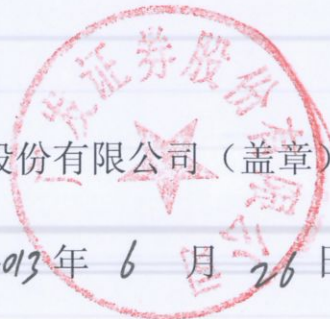 广发证券股份有限公司
股份有限公司（盖章）
013年 6 月 26日